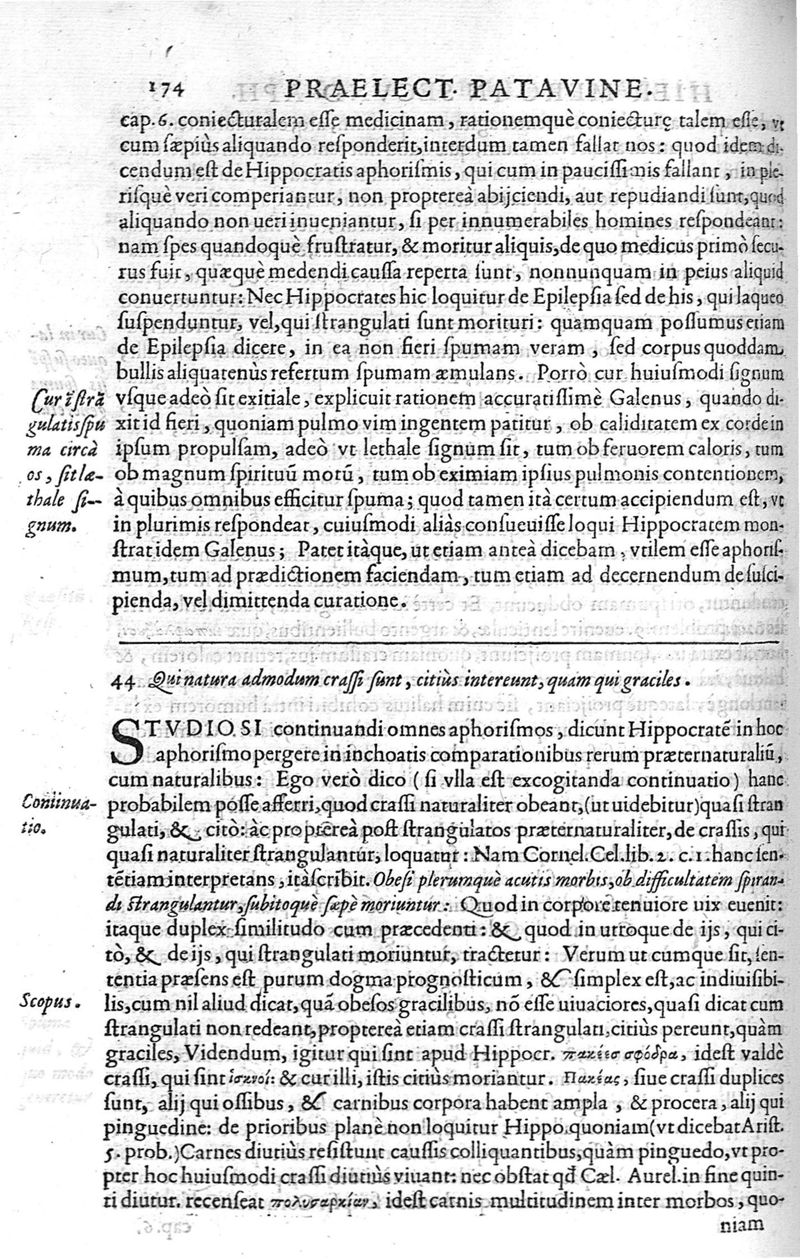 174 PRAELECT. PATAVINE.
cap. 6. coniecturalem esse medicinam, rationemquè coniecturę talem esse, vt
cum sæpiùs aliquando responderit, interdum tamen fallat nos: quod idem di-
cendum est de Hippocratis aphorismis, qui cum in paucissimis fallant, in ple-
risquè veri comperiantur, non proptereà abijciendi, aut repudiandi sunt, quod
aliquando non ueri inueniantur, si per innumerabiles homines respondeant:
nam spes quandoquè frustratur, & moritur aliquis, de quo medicus primò secu-
rus fuit, quæquè medendi caussa reperta sunt, nonnunquam in peius aliquid
conuertuntur: Nec Hippocrates hic loquitur de Epilepsia sed de his, qui laqueo
suspenduntur, vel, qui strangulati sunt morituri: quamquam possumus etiam
de Epilepsia dicere, in ea non fieri spumam veram, sed corpus quoddam,
bullis aliquatenùs refertum spumam æmulans. Porrò cur huiusmodi signum
Cur ĩ strã
gulatis spu
ma circà
os, sit læ-
thale si-
gnum.
vsque adeò sit exitiale, explicuit rationem accuratissimè Galenus, quando di-
xit id fieri, quoniam pulmo vim ingentem patitur, ob caliditatem ex corde in
ipsum propulsam, adeò vt lethale signum sit, tum ob feruorem caloris, tum
ob magnum spirituũ motũ, tum ob eximiam ipsius pulmonis contentionem,
à quibus omnibus efficitur spuma; quod tamen ità certum accipiendum est, vt
in plurimis respondeat, cuiusmodi aliàs consueuisse loqui Hippocratem mon-
strat idem Galenus; Patet itàque, ut etiam anteà dicebam, vtilem esse aphoris-
mum, tum ad prædictionem faciendam, tum etiam ad decernendum de susci-
pienda, vel dimittenda curatione.
44 Qui natura admodum crassi sunt, citiùs intereunt, quam qui graciles.
STVDIOSI continuandi omnes aphorismos, dicunt Hippocratẽ in hoc
aphorismo pergere in inchoatis comparationibus rerum præternaturaliũ,
cum naturalibus: Ego verò dico (si vlla est excogitanda continuatio) hanc
Continua-
tio.
probabilem posse afferri, quod crassi naturaliter obeant, (ut uidebitur) quasi stran
gulati, &, citò: àc proptereà post strangulatos præternaturaliter, de crassis, qui
quasi naturaliter strangulantur, loquatur: Nam Cornel. Cel. lib. 2. c. 1. hanc sen-
tẽtiam interpretans, ità scribit. Obesi plerumquè acutis morbis, ob difficultatem spiran-
di strangulantur, subitoquè sæpè moriuntur: Quod in corpore tenuiore uix euenit:
itaque duplex similitudo cum præcedenti: & quod in utroque de ijs, qui ci-
tò, & de ijs, qui strangulati moriuntur, tractetur: Verum ut cumque sit, sen-
tentia præsens est purum dogma prognosticum, & simplex est, ac indiuisibi-
Scopus.
lis, cum nil aliud dicat, quã obesos gracilibus, nõ esse uiuaciores, quasi dicat cum
strangulati non redeant, proptereà etiam crassi strangulati, citiùs pereunt, quàm
graciles, Videndum, igitur qui sint apud Hippocr. παχέεσ σφόδρα, idest valdè
crassi, qui sint ἰσχνοί: & cur illi, istis citiùs moriantur. Παχέας, siue crassi duplices
sunt, alij qui ossibus, & carnibus corpora habent ampla, & procera, alij qui
pinguedine: de prioribus planè non loquitur Hippo. quoniam (vt dicebat Arist.
5. prob.) Carnes diutiùs resistunt caussis colliquantibus, quàm pinguedo, vt pro-
pter hoc huiusmodi crassi diutiùs viuant: nec obstat qđ Cæl. Aurel. in fine quin-
ti diutur. recenseat πολυσαρκίαν, idest carnis multitudinem inter morbos, quo-
niam